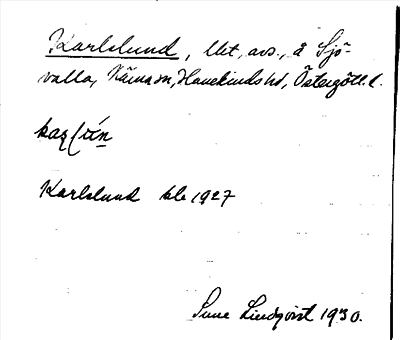 Karlslund, lht, avs., å Sjö-
valla, Kärna sn, Hanekinds hd, Östergötl. l.
Karlslund kb 1927
Sune Lindqvist 1930.